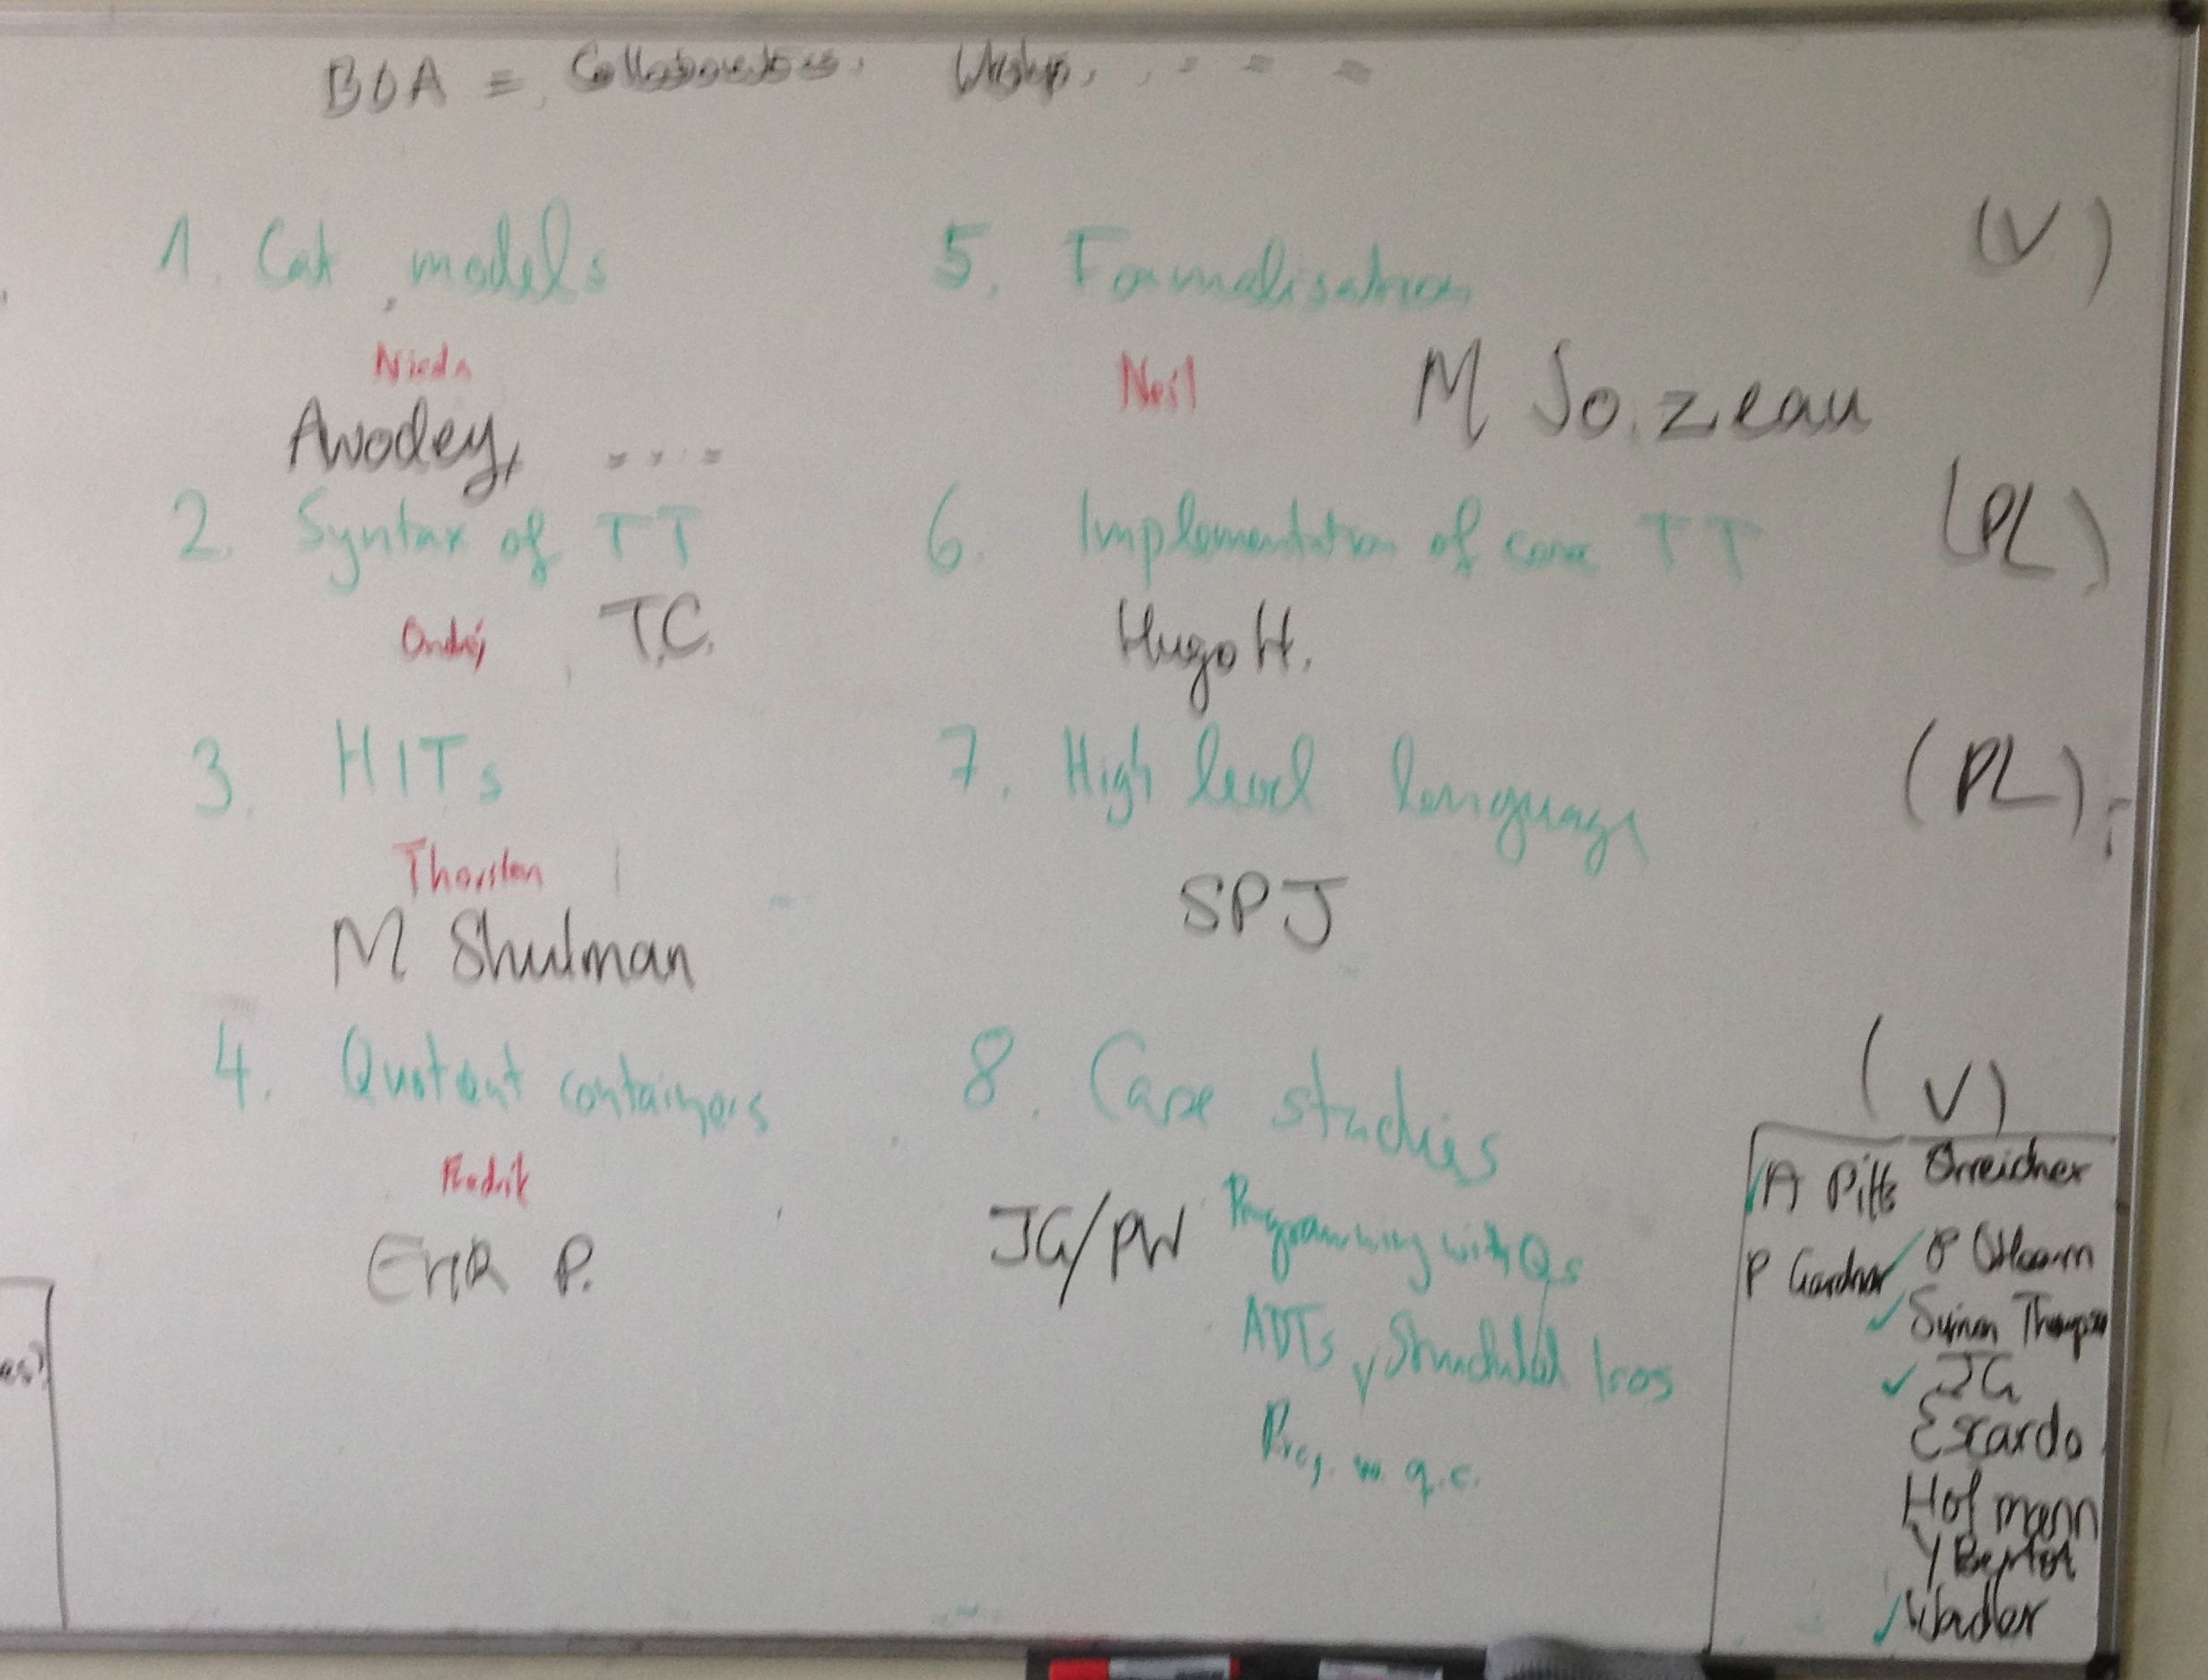 BOA = Collaborators.
1. Cat models
Nicola
Awodey, ....
2. Syntax of TT
Ondrej T.C.
3. HITs
Thorsten
M Shulman
4. Quotient containers
Fredrik
Erik P.
5. Formalisation (V)
Neil M So.zeau
6. Implementation of core TT (PL)
Hugo H.
7. High level language (PL)
SPJ
8. Case studies (V)
JG/PW Programming with Qs
ADTs, Structural
Prog. w. q.c.
A Pitts
P Gardner
Streicher
P OHearn
Simon Thompson
JG
Escardo
Hofmann
Y Bertot
Wadler
es)